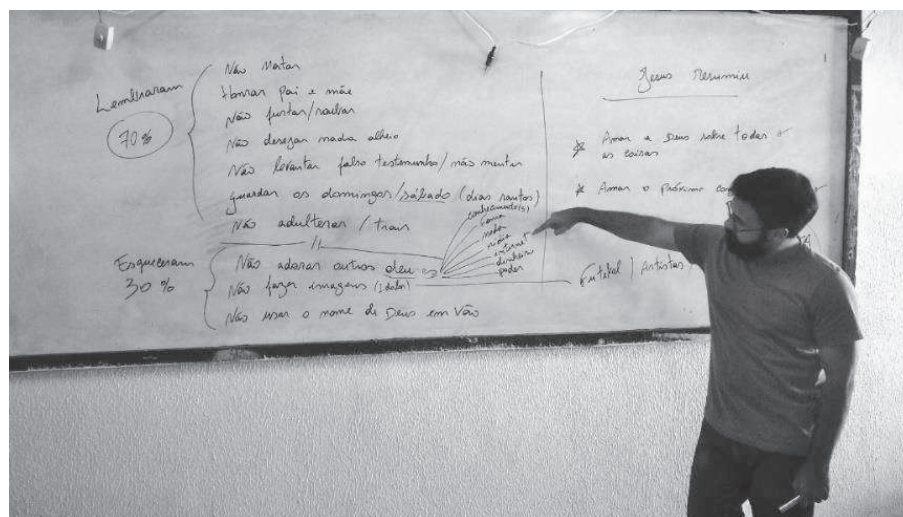 Lembraram
70%
Não Matar
Honrar Pai e mãe
Não furtar/roubar
Não desejar nada alheio
Não levantar falso testemunho/não mentir
guardar os domingos/sábado (dias santos)
Não adulterar / trair
Esqueceram
30%
Não adorar outros deuses
Não fazer imagens (ídolos)
Não usar o nome de Deus em Vão
conhecimento(s)
fama
moda
mídia
internet
dinheiro
poder
Futebol / Artistas
Jesus Resumiu
Amar a Deus sobre todas
as coisas
Amar o próximo